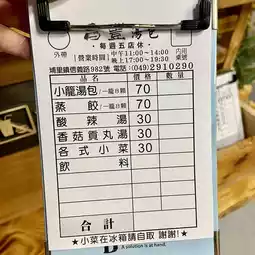 湯包
•每週五店休•
外帶
內用桌號
【營業時間】中午11:00~14:00
晚上17:00~19:30
埔里鎮信義路982號 電話(049)2910290
品名 價格 數量
小龍湯包/一籠8顆 70
蒸餃/一籠8顆 70
酸辣湯 30
香菇貢丸湯 30
各式小菜 30
飲料
合計
★小菜在冰箱請自取 謝謝!★
A solution is at hand.